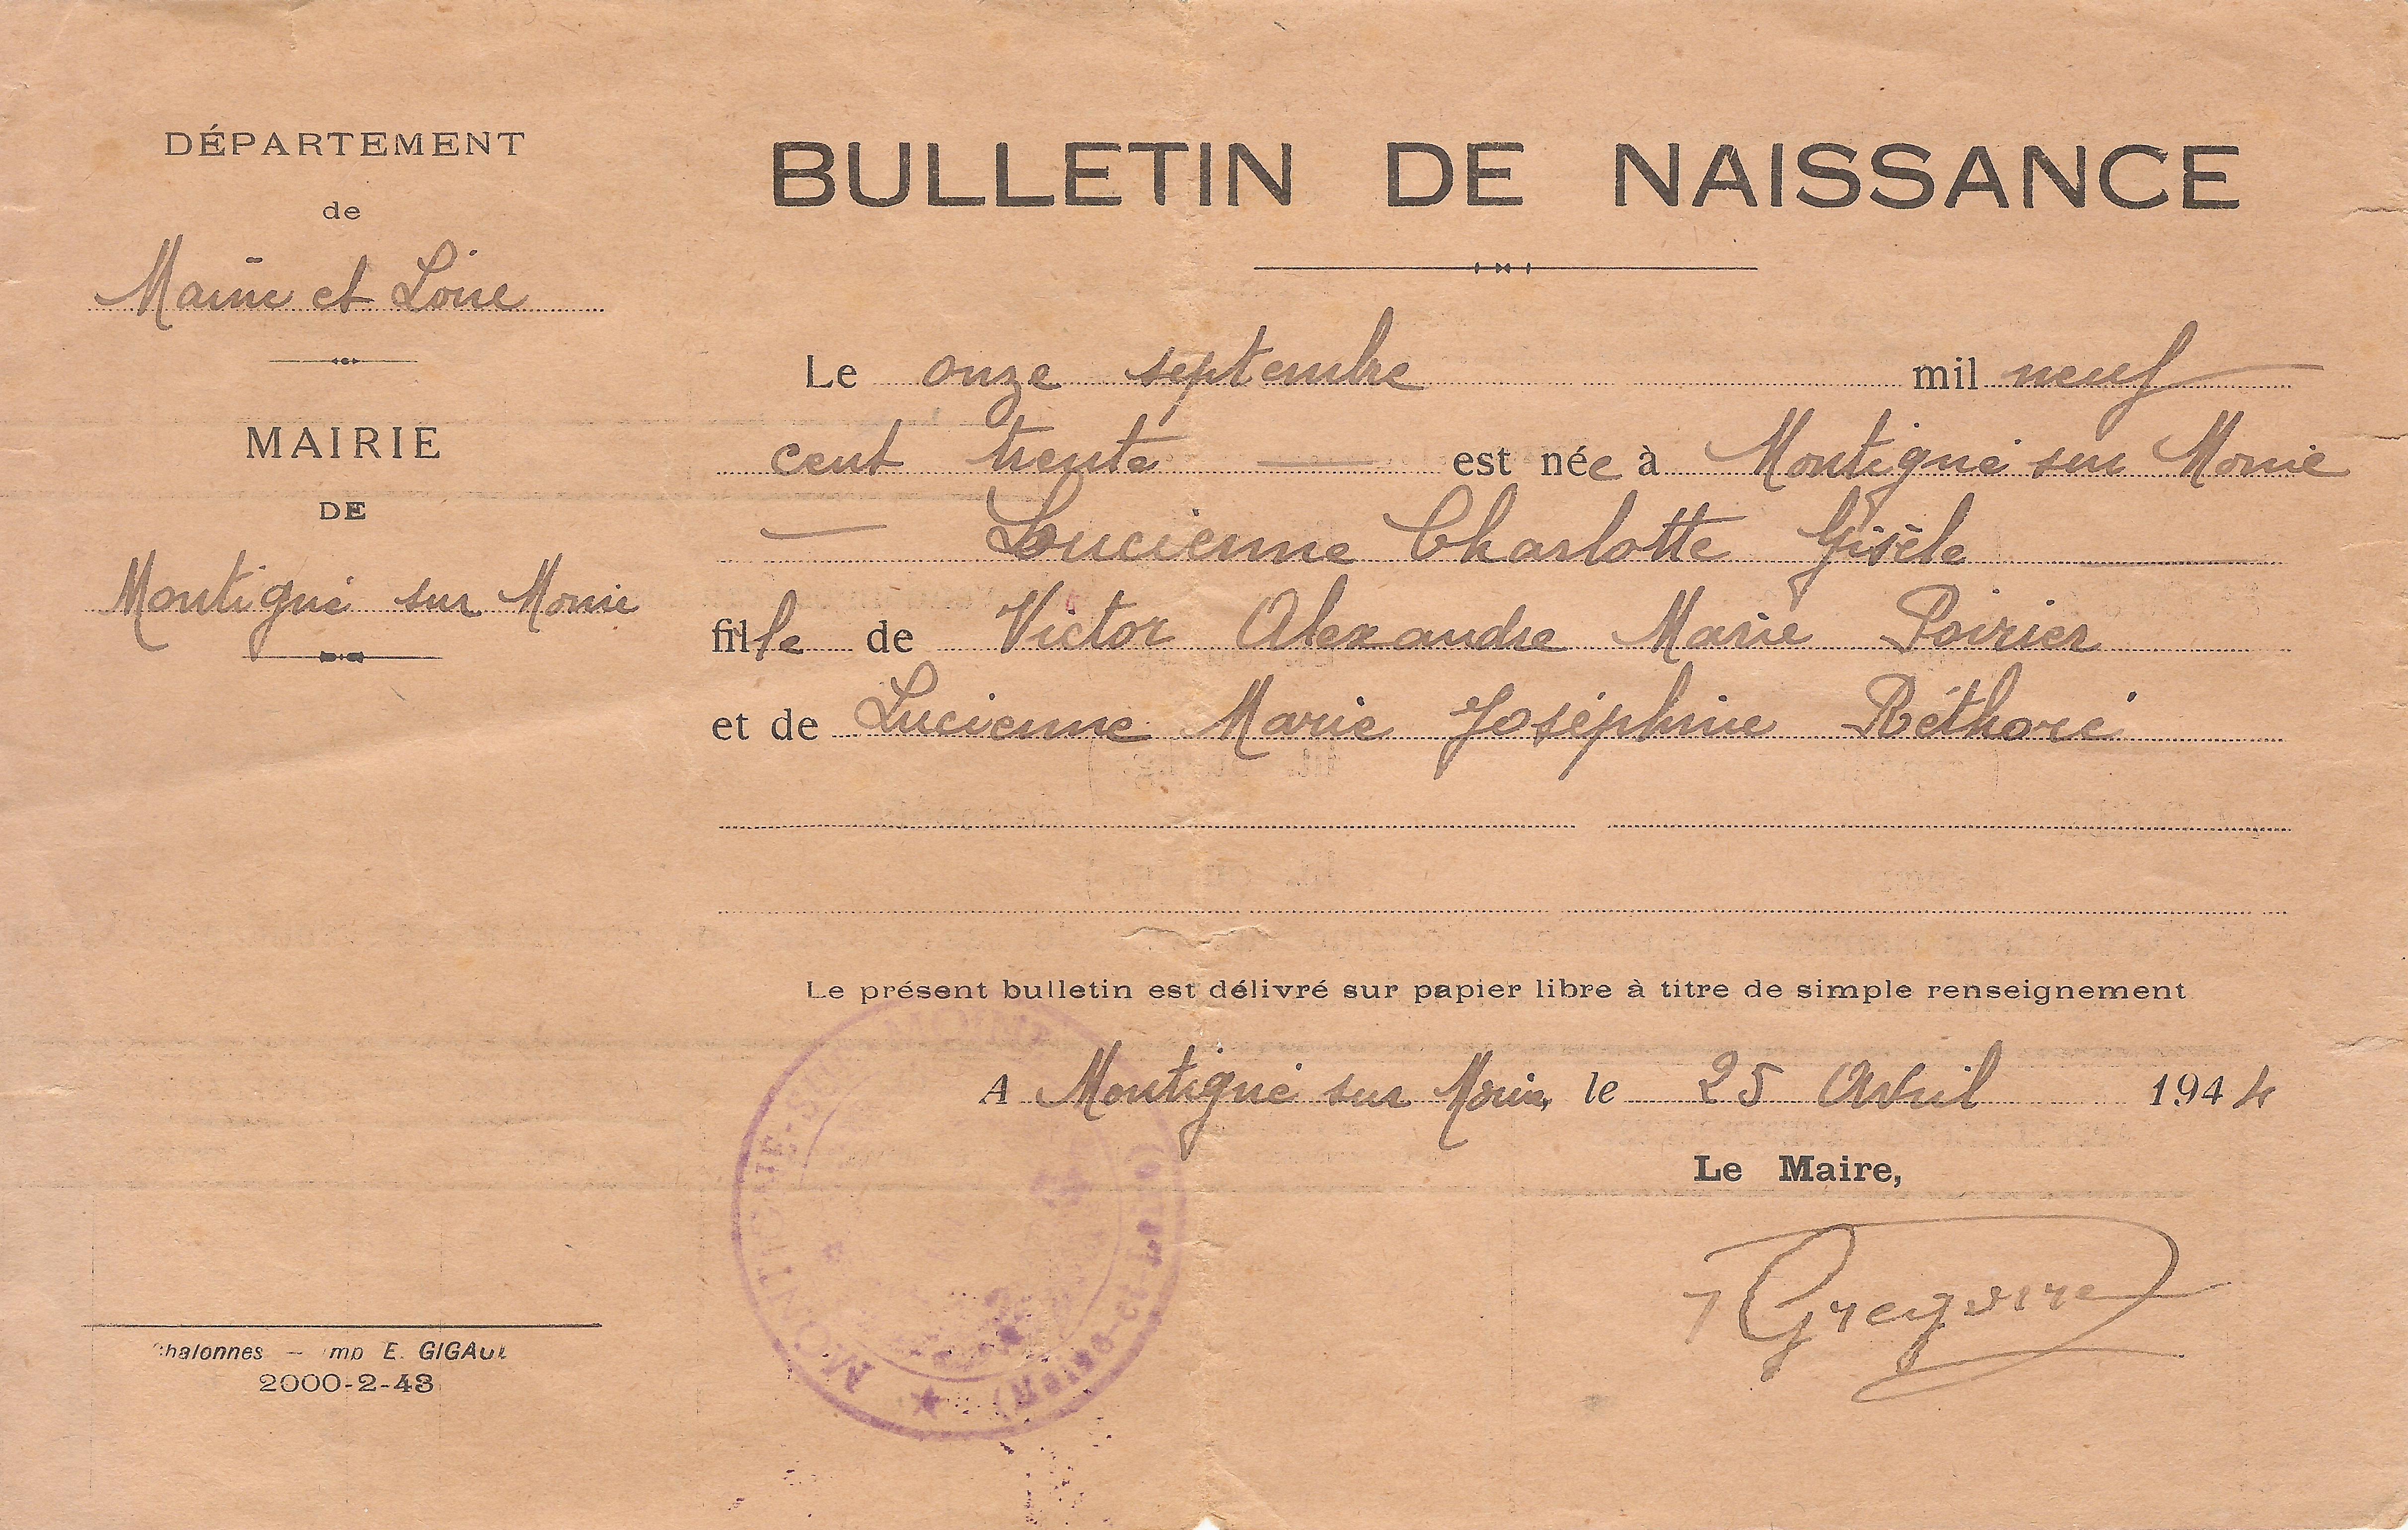 DÉPARTEMENT
de
Maine et Loire
MAIRIE
DE
Montigné sur Moine
BULLETIN DE NAISSANCE
Le onze septembre mil neuf
cent trente — est née à Montigné sur Moine
— Lucienne Charlotte Gisèle
fille de Victor Alexandre Marie Poirier
et de Lucienne Marie Joséphine Réthoré
Le présent bulletin est délivré sur papier libre à titre de simple renseignement
A Montigné sur Moine, le 25 Avril 1944
Le Maire,
MONTIGNÉ-SUR-MOINE
(Maine-et-Loire)
Chalonnes — Imp E. GIGAUL
2000-2-43